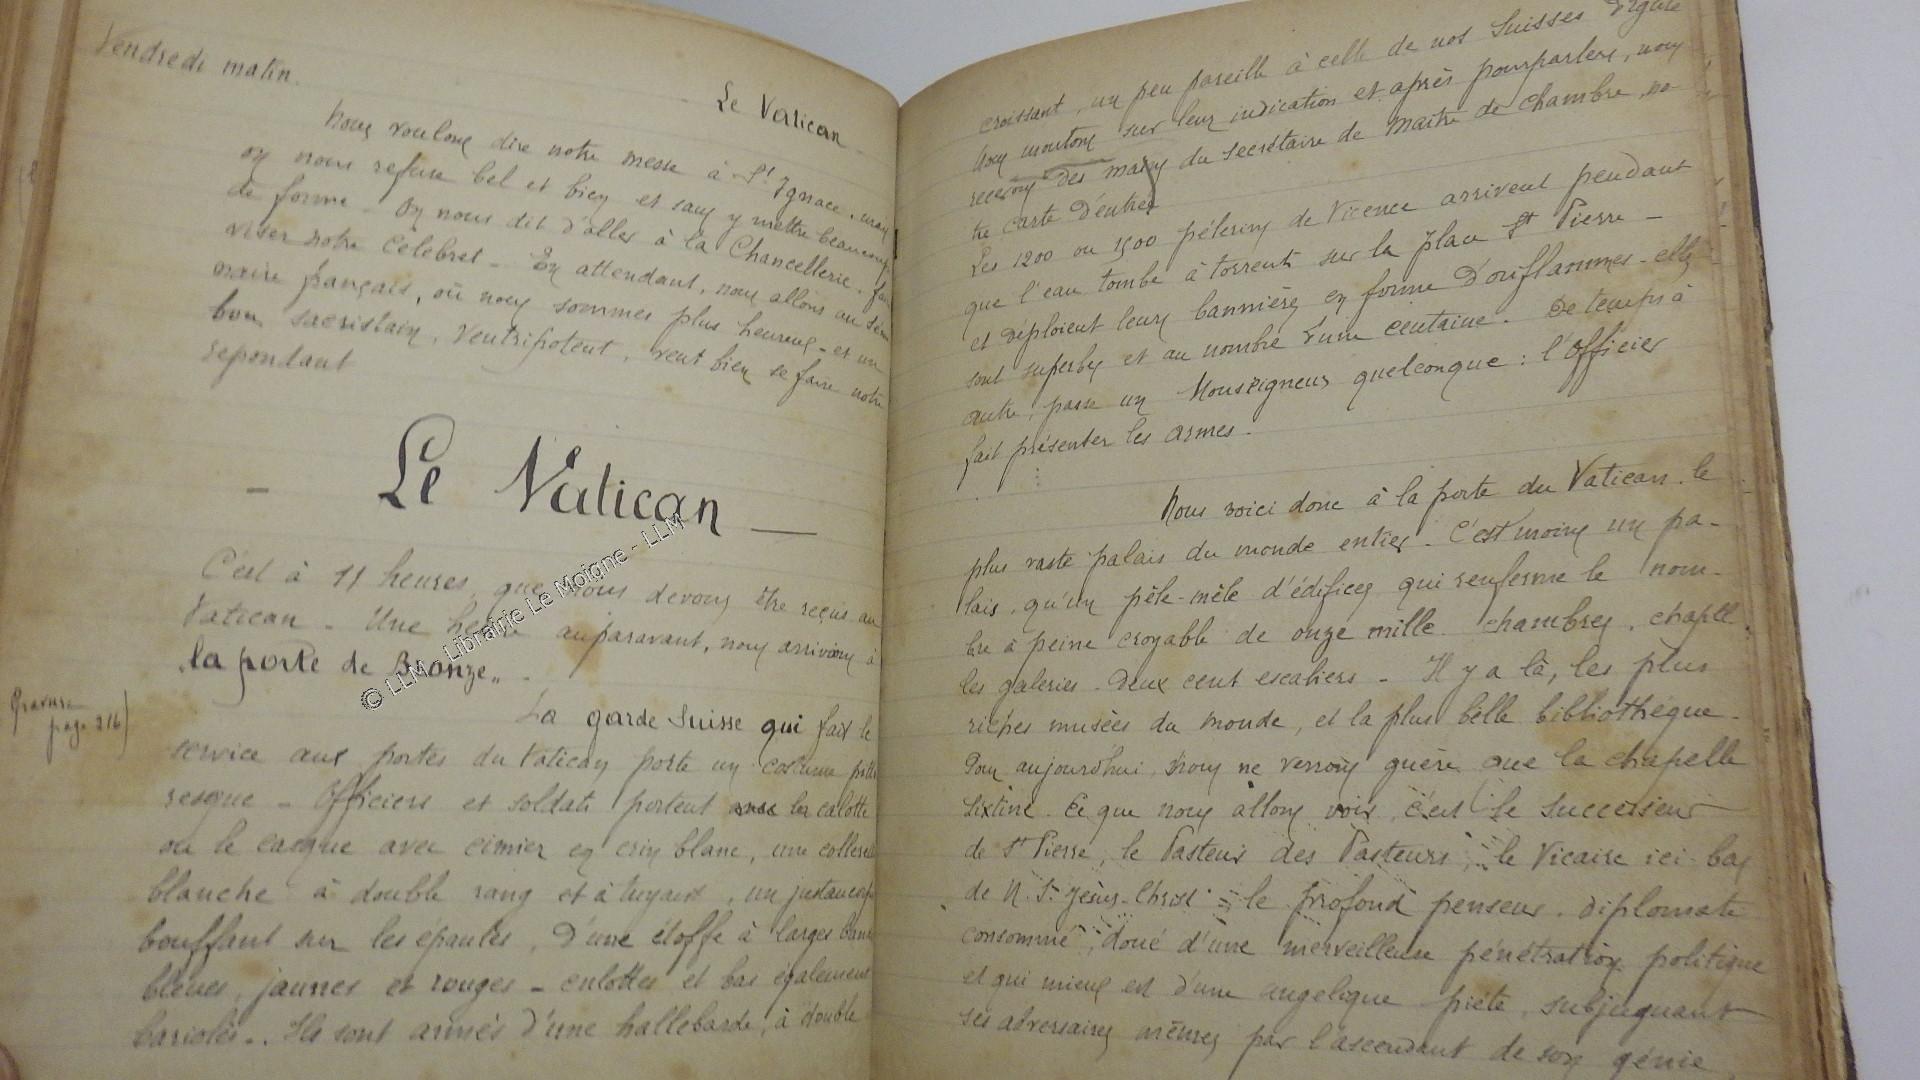 Vendredi matin.
Le Vatican
Nous voulons dire notre messe à St Ignace.
on nous refuse bel et bien et sans y mettre beaucoup
de forme - On nous dit d'aller à la Chancellerie. faire
viser notre celebret - En attendant, nous allons au Sémi
naire français, où nous sommes plus heureux - et un
bon sacristain, ventripotent, veut bien se faire notre
repondant
- Le Vatican -
C'est à 11 heures, que nous devons être reçus au
Vatican - Une heure auparavant, nous arrivions à
"la porte de Bronze" -
Gravure page 216)
La garde Suisse qui fait le
service aux portes du Vatican porte un costume pitto
resque - Officiers et soldats portent la calotte
ou le casque avec cimier en crin blanc, une collerette
blanche à double rang et à tuyaux, un justaucorps
bouffant sur les épaules, d'une étoffe à larges bandes
bleues, jaunes et rouges - culottes et bas également
bariolés.. Ils sont armés d'une hallebarde, à double
croissant, un peu pareille à celle de nos Suisses d'église
Nous montons sur leur indication et après pourparlers, nous
recevons des mains du Secrétaire de Maitre de chambre, no
tre carte d'entrée
Les 1200 ou 1500 pélerins de Vicence arrivent pendant
que l'eau tombe à torrents sur la place St Pierre -
et déploient leurs bannières en forme d'oriflammes - elles
sont superbes et au nombre d'une centaine. De temps à
autre, passe un Monseigneur quelconque : l'officier
fait présenter les armes.
Nous voici donc à la porte du Vatican. le
plus vaste palais du monde entier. C'est moins un pa-
lais, qu'un pêle-mêle d'édifices qui renferme le nom-
bre à peine croyable de onze mille chambres, chapel
les galeries. Deux cent escaliers - Il y a là, les plus
riches musées du monde, et la plus belle bibliothéque -
Pour aujourd'hui, nous ne verrons guère que la chapelle
Sixtine. Ce que nous allons voir, c'est le successeur
de St Pierre, le Pasteur des Pasteurs, le Vicaire ici-bas
de N. S. Jésus-Christ : le profond penseur, diplomate
consommé, doué d'une merveilleuse pénétration politique
et qui mieux est d'une angelique piété, subjuguant
ses adversaires mêmes par l'ascendant de son génie
© LLM - Librairie Le Moigne - LLM